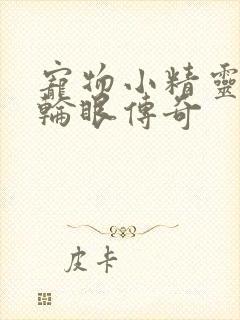 寵物小精靈
輪眼傳奇
皮卡